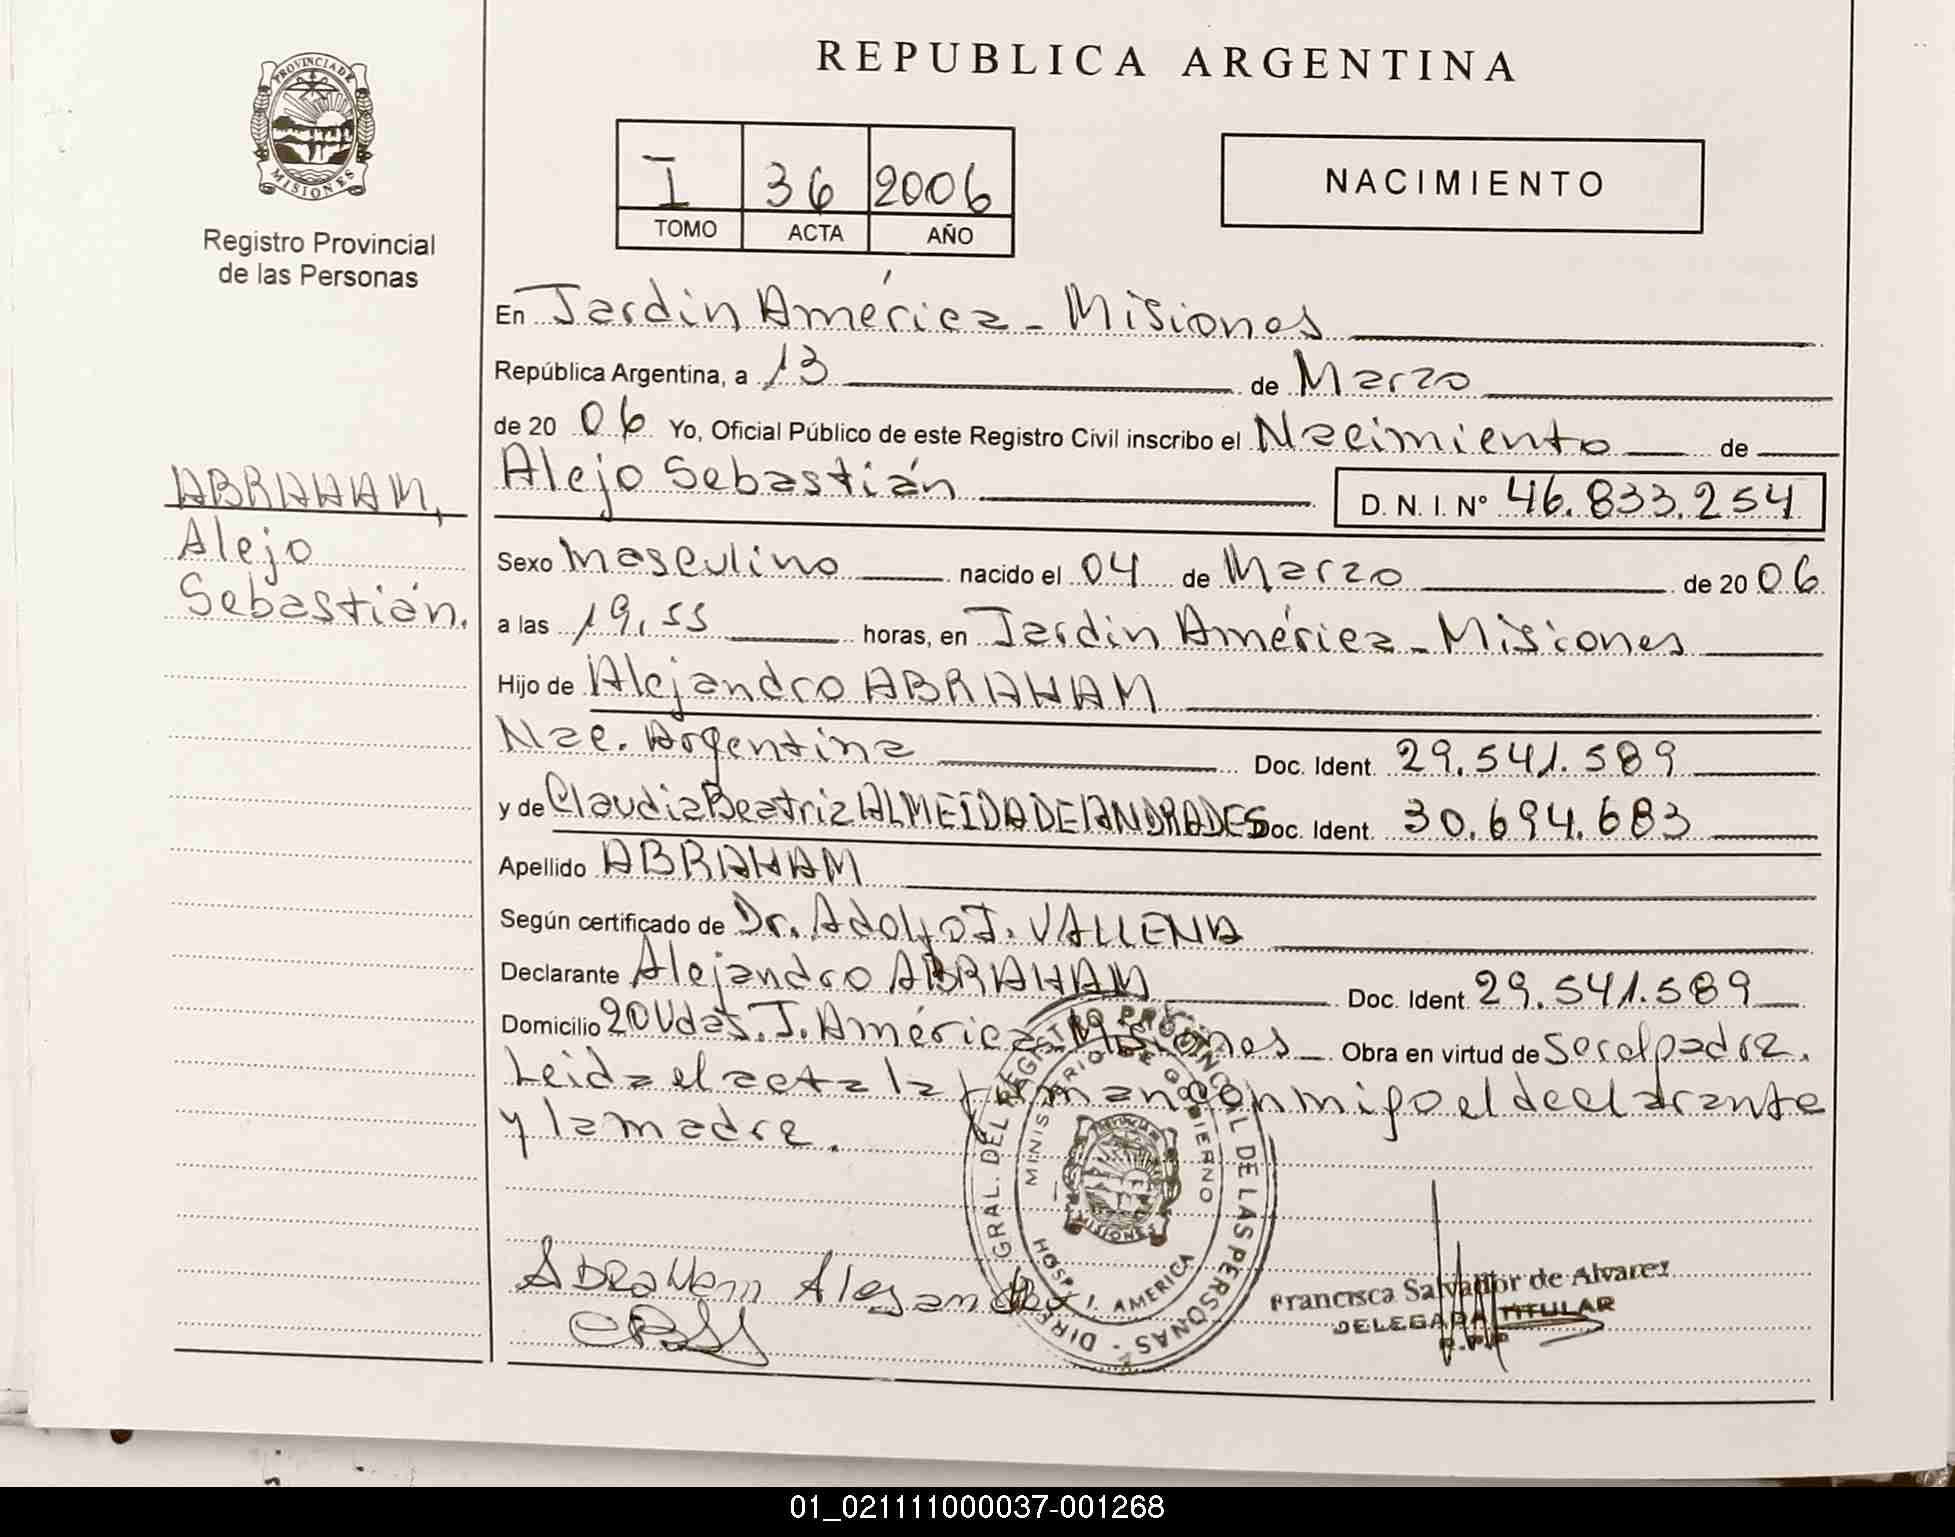 PROVINCIA DE
MISIONES
Registro Provincial
de las Personas
ABRAHAM,
Alejo
Sebastián.
REPUBLICA ARGENTINA
I 36 2006
TOMO ACTA AÑO
NACIMIENTO
En Jardín América - Misiones
República Argentina, a 13 de Marzo
de 20 06 Yo, Oficial Público de este Registro Civil inscribo el Nacimiento de
Alejo Sebastián D. N. I. Nº 46.833.254
Sexo Masculino nacido el 04 de Marzo de 20 06
a las 19,55 horas, en Jardín América - Misiones
Hijo de Alejandro ABRAHAM
Nac. Argentina Doc. Ident. 29.541.589
y de Claudia Beatriz ALMEIDA DE ANDRADES Doc. Ident. 30.694.683
Apellido ABRAHAM
Según certificado de Dr. Adolfo J. VALLENA
Declarante Alejandro ABRAHAM Doc. Ident. 29.541.589
Domicilio 20 Vdas. J. América - Misiones Obra en virtud de Ser el padre.
Leida el acta la firman conmigo el declarante
y la madre.
DIREC. GRAL. DEL REGISTRO PROVINCIAL DE LAS PERSONAS -
MINISTERIO DE GOBIERNO
MISIONES
HOSP. J. AMERICA
Abraham Alejandro
Francisca Salvador de Alvarez
DELEGADA TITULAR
R.P.P
01_021111000037-001268